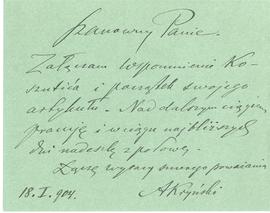 Szanowny Panie.
Załączam wspomnienie Ko-
sutića i początek swojego
artykułu. Nad dalszym ciągiem
pracuję i w ciągu najbliższych
dni nadeszlę z połową.
Łączę wyrazy szczerego poważania
18.I.904. AKryński